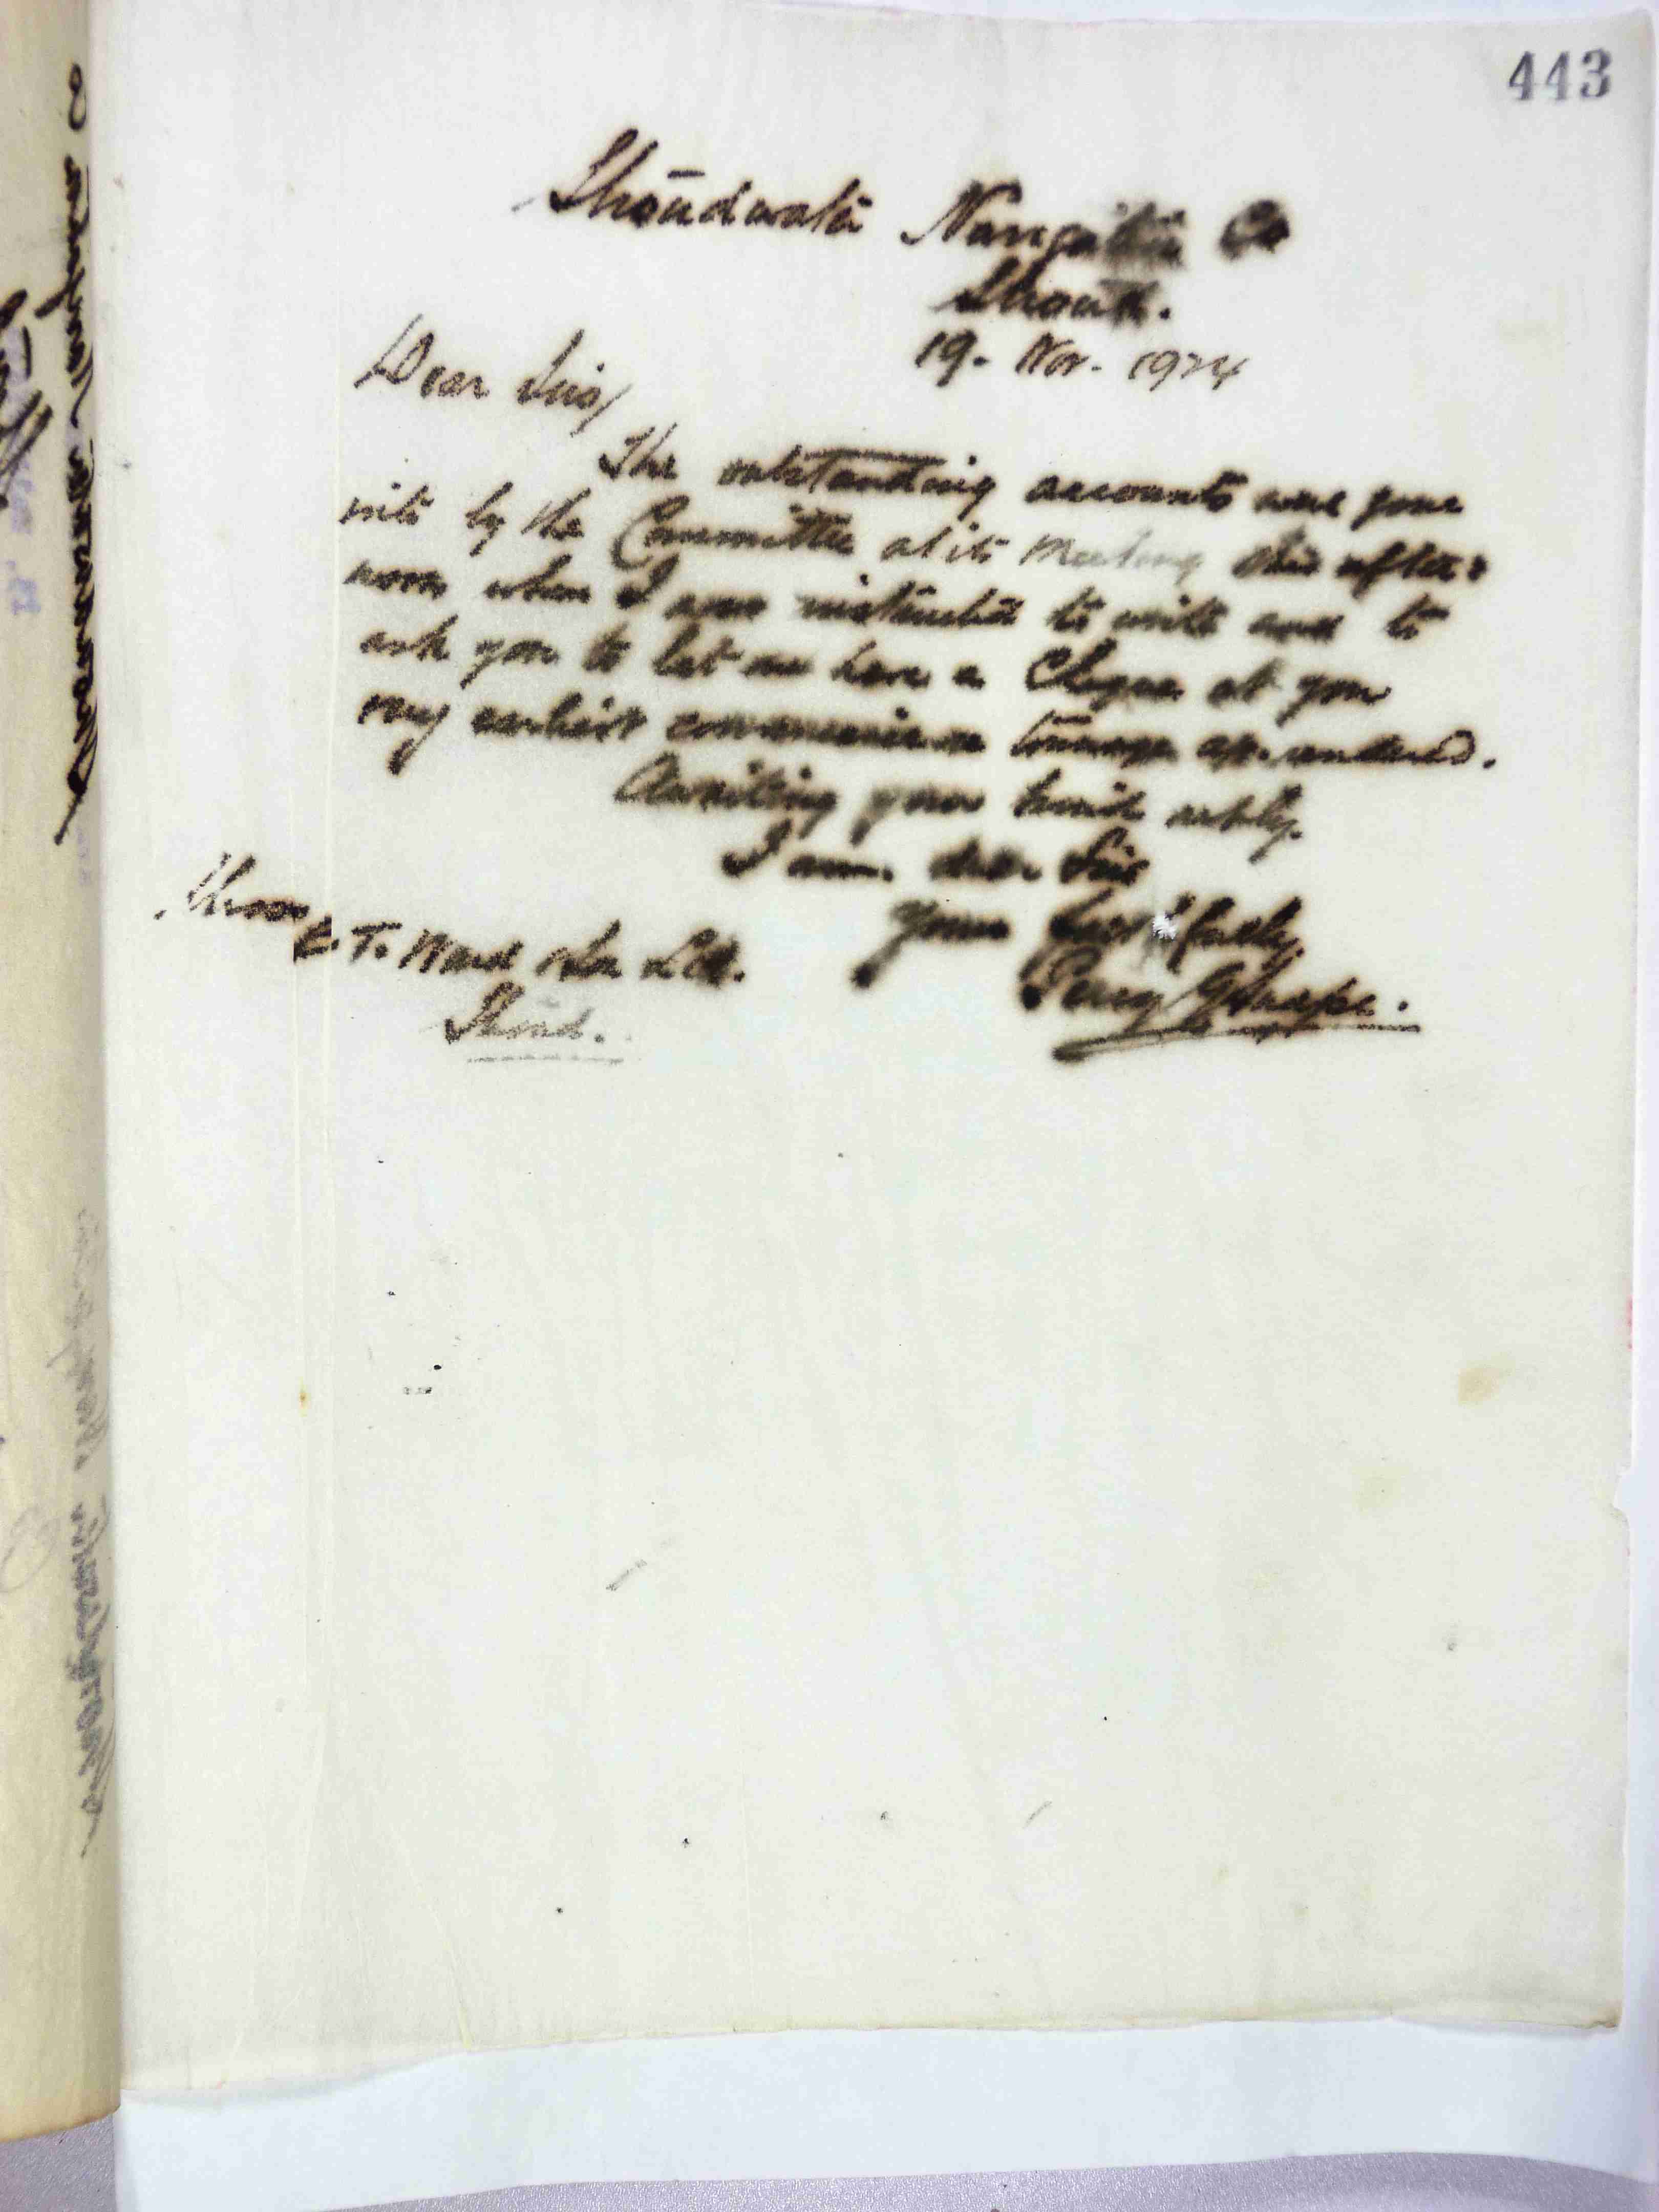 443
Stroudwater Navigation Co
Stroud.
19. Nov. 1924
Dear Sirs/
The outstanding accounts were gone
into by the Committee at its meeting this after=
noon when I was instructed to write and to
ask you to let me have a Cheque at your
very earliest convenience tonnage a/c. rendered.
Awaiting your kind reply.
I am. dear Sirs
Yours faithfully,
Percy G Snape.
Messrs E. T. Ward & Son Ltd.
Stroud.